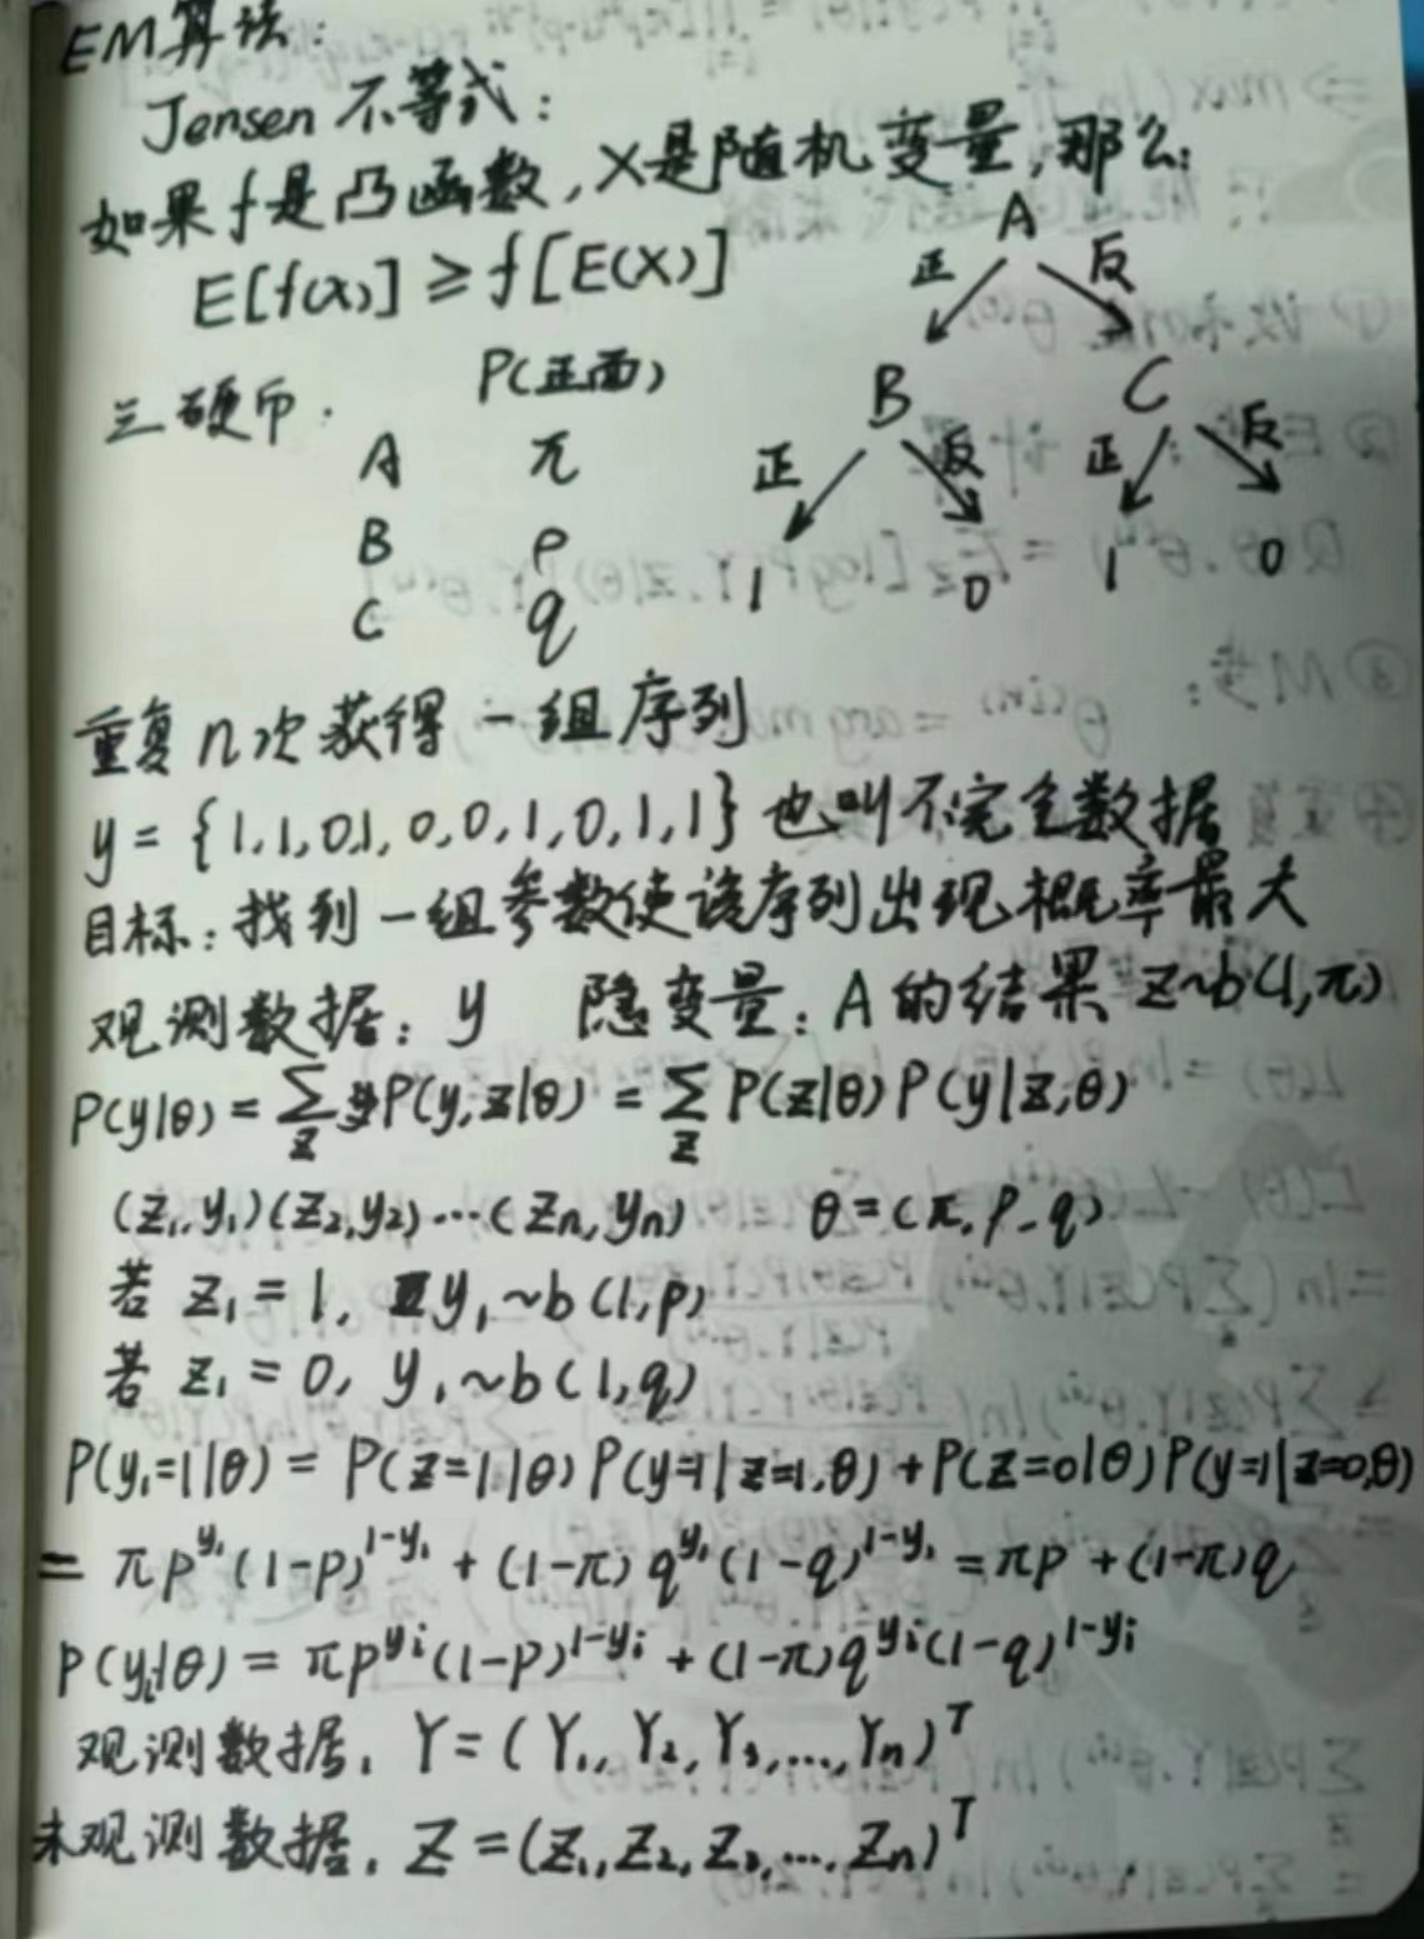 EM算法:
Jensen 不等式:
如果f是凸函数,X是随机变量,那么:
E[f(x)] ≥ f[E(X)]
A
正 反
B C
正 反 正 反
1 0 1 0
三硬币: P(正面)
A π
B p
C q
重复n次获得一组序列
y = {1,1,0,1,0,0,1,0,1,1} 也叫不完全数据
目标:找到一组参数使该序列出现概率最大
观测数据: y 隐变量: A的结果 z~b(1,π)
P(y|θ) = Σ_z P(y,z|θ) = Σ_z P(z|θ)P(y|z,θ)
(z₁,y₁)(z₂,y₂)…(zₙ,yₙ) θ=(π,p,q)
若 z₁=1, y₁~b(1,p)
若 z₁=0, y₁~b(1,q)
P(y₁=1|θ) = P(z=1|θ)P(y=1|z=1,θ)+P(z=0|θ)P(y=1|z=0,θ)
= πp^{y₁}(1-p)^{1-y₁} + (1-π)q^{y₁}(1-q)^{1-y₁} = πp+(1-π)q
P(yᵢ|θ) = πp^{yᵢ}(1-p)^{1-yᵢ} + (1-π)q^{yᵢ}(1-q)^{1-yᵢ}
观测数据, Y=(Y₁,Y₂,Y₃,…,Yₙ)^T
未观测数据, Z=(Z₁,Z₂,Z₃,…,Zₙ)^T